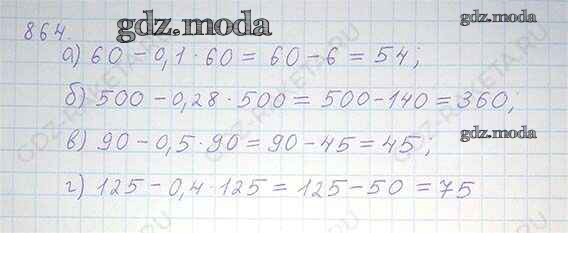 gdz.moda
gdz.moda
864.
а) 60 − 0,1 · 60 = 60 − 6 = 54;
б) 500 − 0,28 · 500 = 500 − 140 = 360;
в) 90 − 0,5 · 90 = 90 − 45 = 45;
gdz.moda
г) 125 − 0,4 · 125 = 125 − 50 = 75
GDZ-RAKETA.RU
GDZ-RAKETA.RU